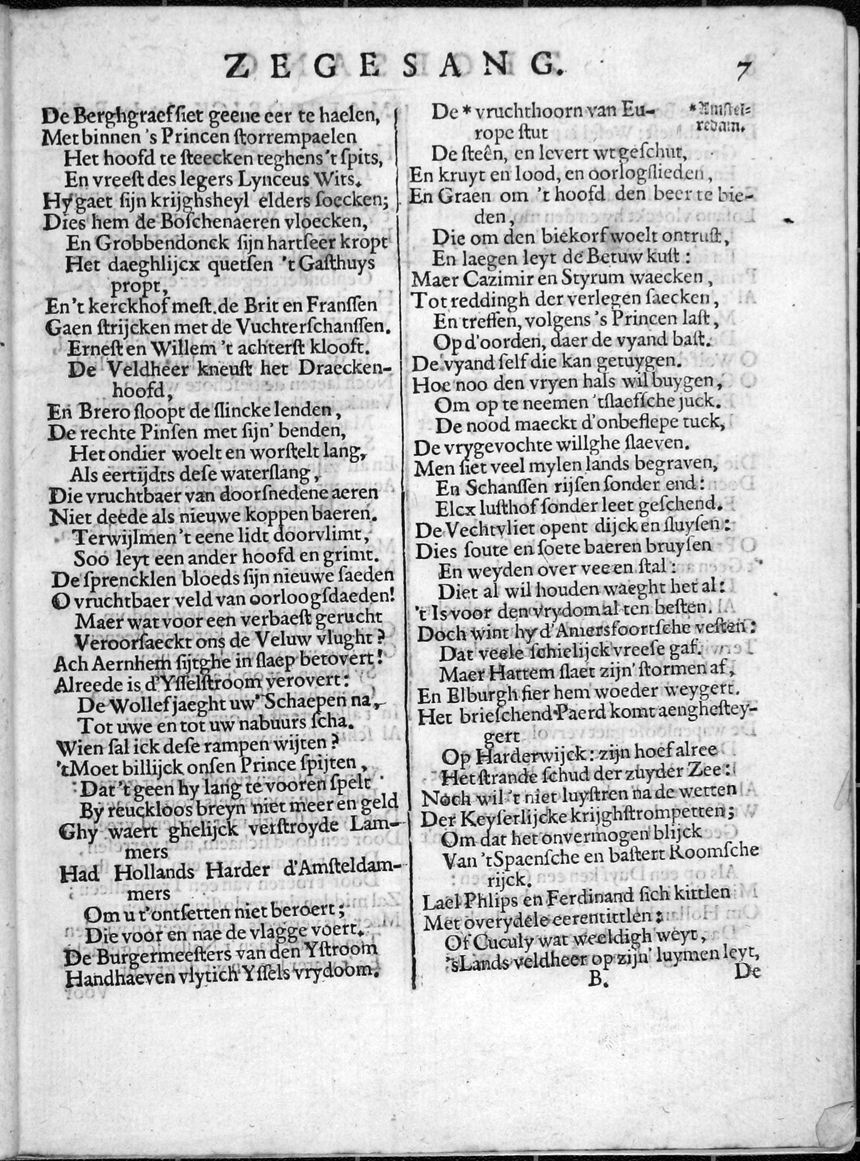 ZEGESANG. 7
De Berghgraef siet geene eer te haelen,
Met binnen 's Princen storrempaelen
Het hoofd te steecken teghens 't spits,
En vreest des legers Lynceus Wits.
Hy gaet sijn krijghsheyl elders soecken;
Dies hem de Boschenaeren vloecken,
En Grobbendonck sijn hartseer kropt
Het daeghlijcx quetsen 't Gasthuys
propt,
En 't kerckhof mest. de Brit en Franssen
Gaen strijcken met de Vuchterschanssen.
Ernest en Willem 't achterst klooft.
De Veldheer kneust het Draecken-
hoofd,
En Brero sloopt de slincke lenden,
De rechte Pinsen met sijn' benden,
Het ondier woelt en worstelt lang,
Als eertijdts dese waterslang,
Die vruchtbaer van doorsnedene aeren
Niet deede als nieuwe koppen baeren.
Terwijlmen 't eene lidt doorvlimt,
Soo leyt een ander hoofd en grimt.
De sprencklen bloeds sijn nieuwe saeden
O vruchtbaer veld van oorloogsdaeden!
Maer wat voor een verbaest gerucht
Veroorsaeckt ons de Veluw vlught?
Ach Aernhem sijtghe in slaep betovert!
Alreede is d'Ysselstroom verovert:
De Wollef jaeght uw' Schaepen na,
Tot uwe en tot uw nabuurs scha.
Wien sal ick dese rampen wijten?
't Moet billijck onsen Prince spijten,
Dat 't geen hy lang te vooren spelt
By reuckloos breyn niet meer en geld
Ghy waert ghelijck verstroyde Lam-
mers
Had Hollands Harder d'Amsteldam-
mers
Om u t'ontsetten niet beroert;
Die voor en nae de vlagge voert.
De Burgermeesters van den Ystroom
Handhaeven vlytich Yssels vrydoom.
De * vruchthoorn van Eu-
rope stut
*Amstel-
redam.
De steên, en levert wt geschut,
En kruyt en lood, en oorlogslieden,
En Graen om 't hoofd den beer te bie-
den,
Die om den biekorf woelt ontrust,
En laegen leyt de Betuw kust:
Maer Cazimir en Styrum waecken,
Tot reddingh der verlegen saecken,
En treffen, volgens 's Princen last,
Op d'oorden, daer de vyand bast.
De vyand self die kan getuygen.
Hoe noo den vryen hals wil buygen,
Om op te neemen 't slaefsche juck.
De nood maeckt d'onbeslepe tuck,
De vrygevochte willghe slaeven.
Men siet veel mylen lands begraven,
En Schanssen rijsen sonder end:
Elcx lusthof sonder leet geschend.
De Vechtvliet opent dijck en sluysen:
Dies soute en soete baeren bruysen
En weyden over vee en stal:
Diet al wil houden waeght het al:
't Is voor den vrydom al ten besten.
Doch wint hy d'Amersfoortsche vesten:
Dat veele schielijck vreese gaf.
Maer Hattem slaet zijn' stormen af,
En Elburgh fier hem woeder weygert.
Het brieschend Paerd komt aenghestey-
gert
Op Harderwijck: zijn hoef alree
Het strande schud der zuyder Zee:
Noch wil 't niet luystren na de wetten
Der Keyserlijcke krijghstrompetten;
Om dat het onvermogen blijck
Van 't Spaensche en bastert Roomsche
rijck.
Lael Phlips en Ferdinand sich kittlen
Met overydele eerentittlen:
Of Cuculy wat weeldigh weyt,
's Lands veldheer op zijn' luymen leyt,
B. De